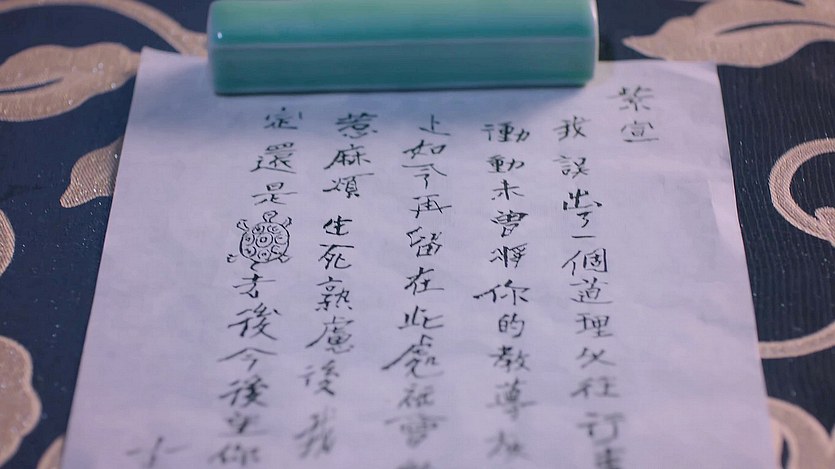 紫宣
我誤出了一個道理以往行
衝動未曾將你的教導
上如今再留在此處祇會
惹麻煩生死熟慮後我
定還是去後今後望你